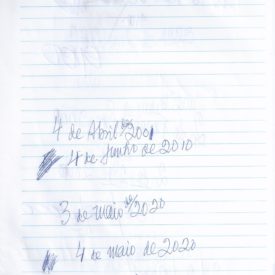 4 de Abril de 2001
4 de Junho de 2010
3 de maio de 2020
4 de maio de 2020